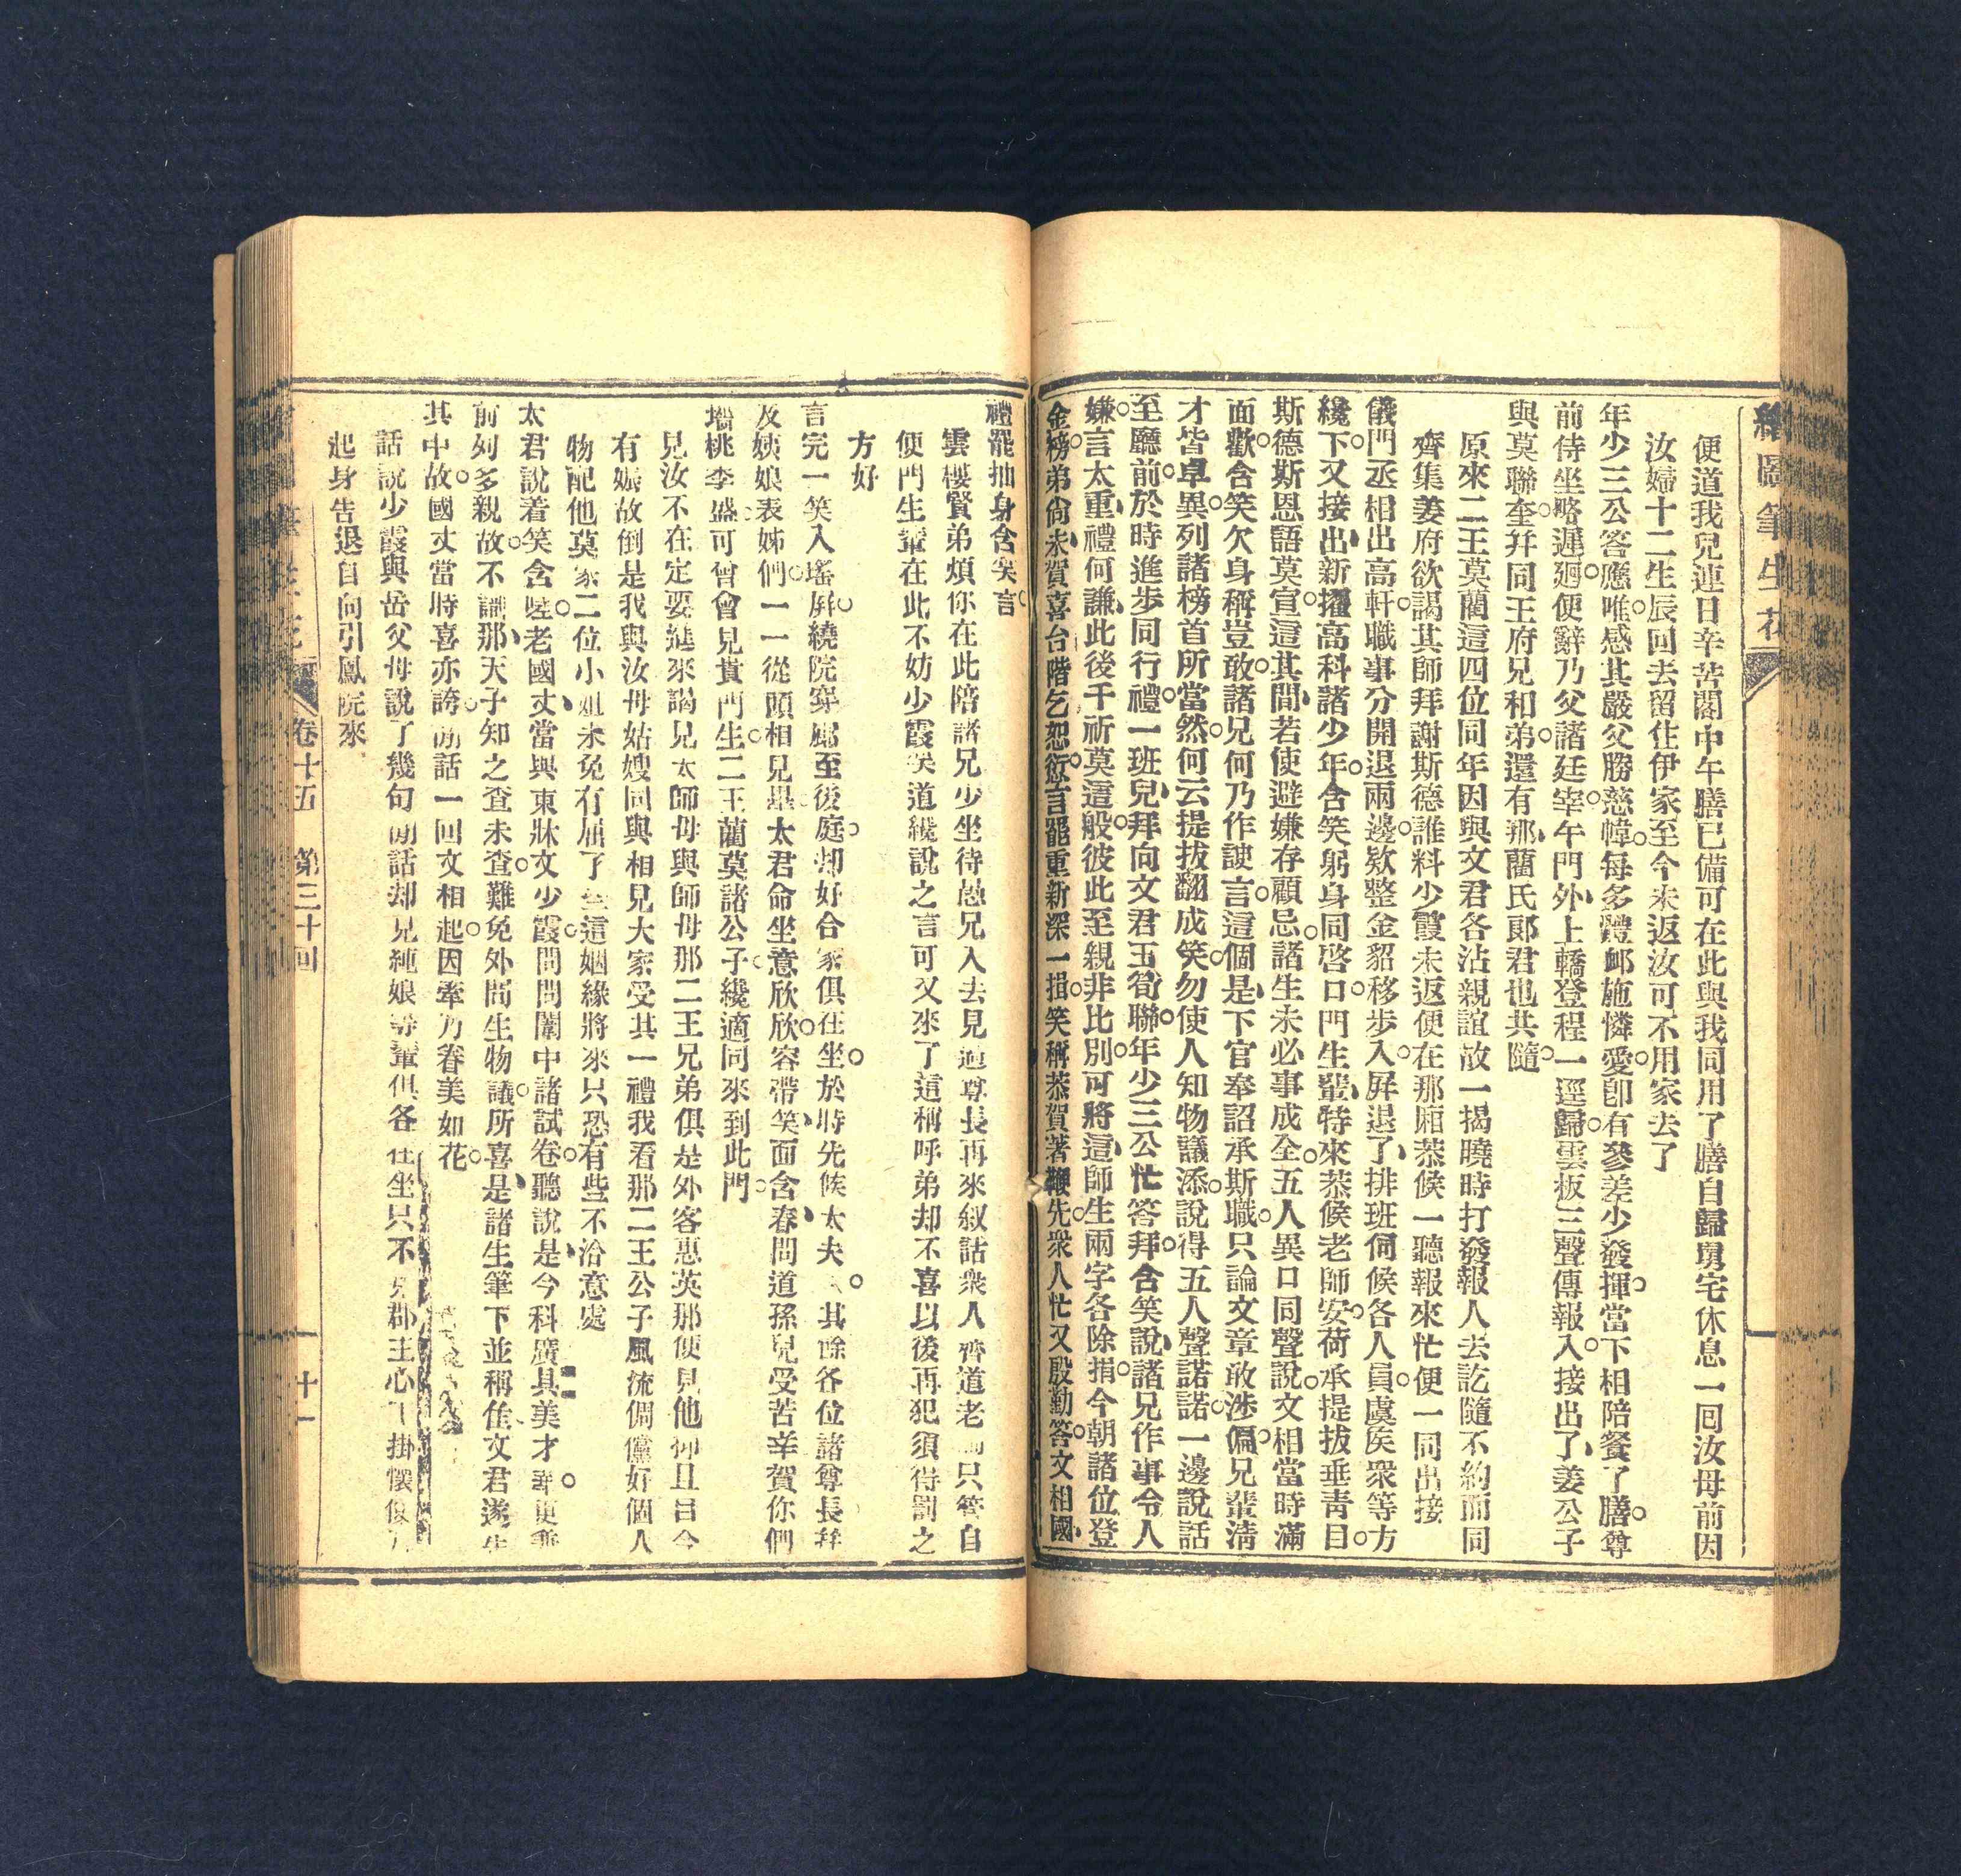 繪圖筆生花
便道我兒連日辛苦閣中午膳已備可在此與我同用了膳自歸舅宅休息一回汝母前因
汝婦十二生辰回去留住伊家至今未返汝可不用家去了
年少三公答應唯感其嚴父勝慈幃每多體邺施憐愛卽有參差少發揮當下相陪餐了膳尊
前侍坐略遲廻便辭乃父諸廷宰午門外上轎登程一逕歸雲板三聲傳報入接出了姜公子
與莫聯奎幷同王府兄和弟還有那藺氏郞君也共隨
原來二王莫藺這四位同年因與文君各沾親誼故一揭曉時打發報人去訖隨不約而同
齊集姜府欲謁其師拜謝斯德誰料少霞未返便在那廂恭候一聽報來忙便一同出接
儀門丞相出高軒職事分開退兩邊欵整金貂移步入屛退了排班伺候各人員虞矦衆等方
纔下又接出新擢高科諸少年含笑躬身同啓口門生輩特來恭候老師安荷承提拔垂靑目
斯德斯恩語莫宣這其間若使避嫌存顧忌諸生未必事成全五人異口同聲說文相當時滿
面歡含笑欠身稱豈敢諸兄何乃作諛言這個是下官奉詔承斯職只論文章敢涉偏兄輩淸
才皆卓異列諸榜首所當然何云提拔翻成笑勿使人知物議添說得五人聲諾諾一邊說話
至廳前於時進步同行禮一班兒拜向文君玉筍聯年少三公忙答拜含笑說諸兄作事令人
嫌言太重禮何謙此後千祈莫這般彼此至親非比別可將這師生兩字各除捐今朝諸位登
金榜弟尙未賀喜台階乞恕愆言罷重新深一揖笑稱恭賀著鞭先衆人忙又殷勤答文相國
禮罷抽身含笑言
雲樓賢弟煩你在此陪諸兄少坐待愚兄入去見過尊長再來叙話衆人齊道老師只管自
便門生輩在此不妨少霞笑道纔說之言可又來了這稱呼弟却不喜以後再犯須得罰之
方好
言完一笑入瑤屛繞院穿廊至後庭却好合家俱在坐於時先候太夫人其餘各位諸尊長幷
及姨娘表姊們一一從頭相見畢太君命坐意欣欣容帶笑面含春問道孫兒受苦辛賀你們
墻桃李盛可曾會見貴門生二王藺莫諸公子纔適同來到此門
兄汝不在定要進來謁見太師母與師母那二王兄弟俱是外客惠英那便見他抑且目今
有娠故倒是我與汝母姑嫂同與相見大家受其一禮我看那二王公子風流倜儻好個人
物配他莫家二位小姐未免有屈了些這姻緣將來只恐有些不洽意處
太君說着笑含嗟老國丈當與東牀文少霞問問闈中諸試卷聽說是今科廣具美才華更兼
前列多親故不識那天子知之查未查難免外間生物議所喜是諸生筆下並稱佳文君遂告
其中故國丈當時喜亦誇閒話一回文相起因牽乃眷美如花
話說少霞與岳父母說了幾句閒話却見純娘等輩俱各在坐只不見郡王心下掛懷
起身告退自向引鳳院來
卷十五 第三十回
十一